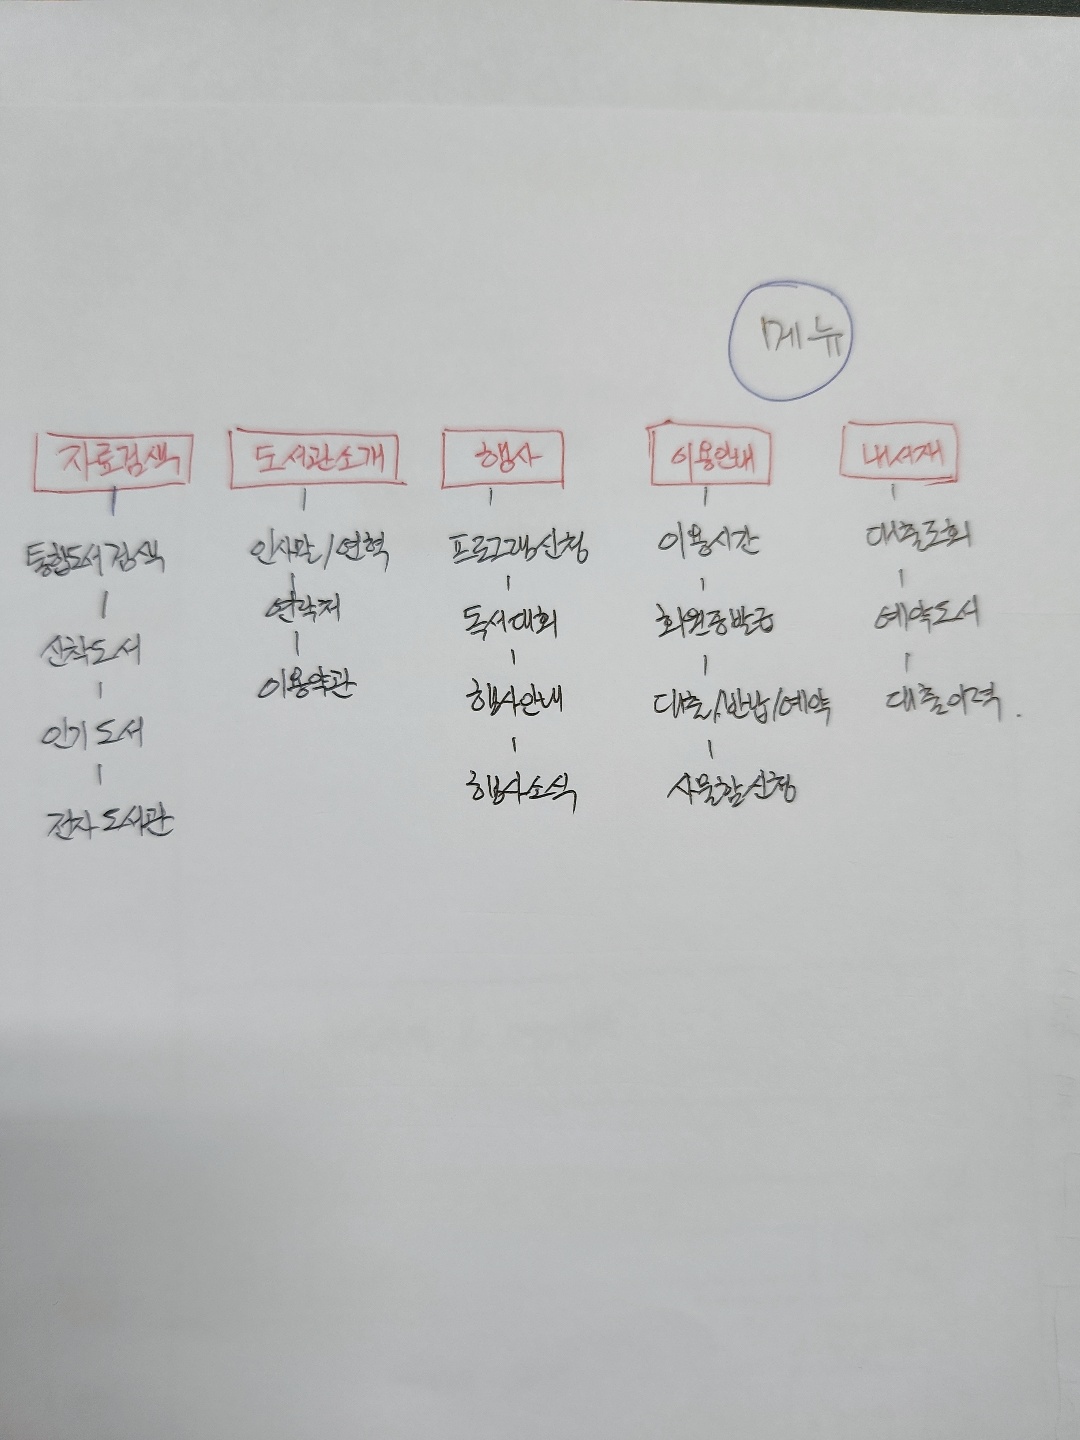 메뉴
자료검색
통합도서 검색
신착도서
인기 도서
전자 도서관
도서관소개
인사말/연혁
연락처
이용약관
행사
프로그램신청
독서대회
행사안내
행사소식
이용안내
이용시간
회원증발급
대출/반납/예약
사물함신청
내서재
대출조회
예약도서
대출이력.